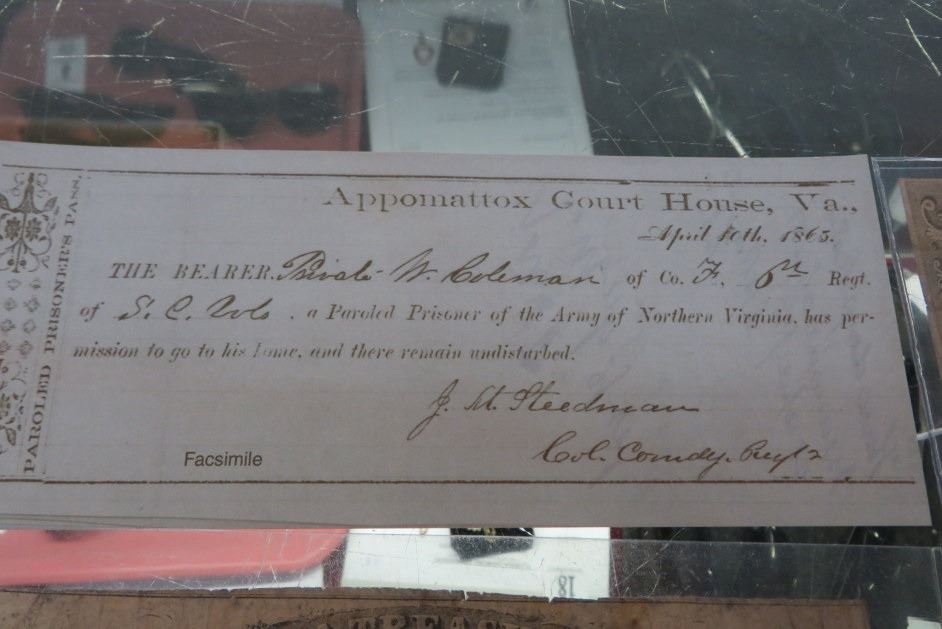 PAROLED PRISONER'S PASS.
Appomattox Court House, Va.,
April 10th, 1865.
THE BEARER, Private W. Coleman of Co. F, 6th Regt.
of S. C. Vols, a Paroled Prisoner of the Army of Northern Virginia, has per-
mission to go to his home, and there remain undisturbed.
J. M. Steedman
Col. Comdg. Regt
Facsimile
18